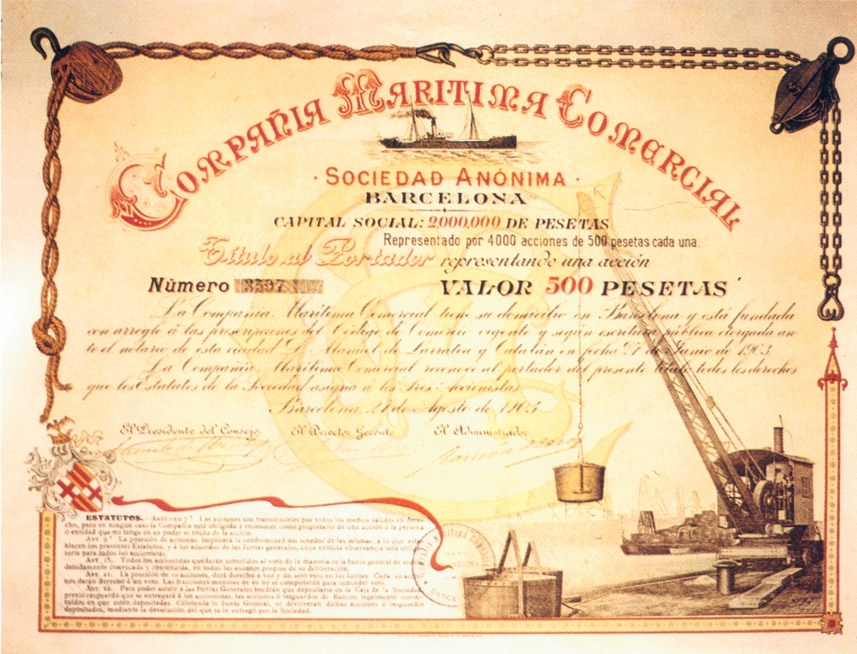 COMPAÑIA MARITIMA COMERCIAL
· SOCIEDAD ANÓNIMA ·
BARCELONA
CAPITAL SOCIAL: 2,000,000 DE PESETAS
Representado por 4000 acciones de 500 pesetas cada una
Título al Portador representando una acción
Número 3597 VALOR 500 PESETAS
La Compañía Marítima Comercial tiene su domicilio en Barcelona y está fundada
con arreglo á las prescripciones del Código de Comercio vigente y según escritura pública otorgada an-
te el notario de esta ciudad D. Manuel de Larratea y Catalán en fecha 27 de Junio de 1903
La Compañía Marítima Comercial reconoce al portador del presente título todos los derechos
que los Estatutos de la Sociedad asigna á los Sres. Accionistas
Barcelona, 27 de Agosto de 1903
El Presidente del Consejo El Director Gerente El Administrador
ESTATUTOS. - ARTÍCULO 7.º Las acciones son transmisibles por todos los medios válidos en dere-
cho, pero en ningún caso la Compañía está obligada á reconocer como propietario de una acción á la persona
ó entidad que no tenga en su poder el título de la acción.
ART. 9.º La posesión de acciones, implicará la conformidad del tenedor de las mismas, á lo que esta-
blecen los presentes Estatutos, y á los acuerdos de las Juntas generales, cuya estricta observancia será obliga-
toria para todos los accionistas.
Todos los accionistas quedarán sometidos al voto de la mayoría de la Junta general
debidamente convocada y constituida, en todos los asuntos propios de su deliberación.
ART. 21. La posesión de 10 acciones, dará derecho á voz y un solo voto en las Juntas. Cada 10 accio-
nes darán derecho á un voto. Las fracciones menores de 10 no se computarán para conceder voto.
ART. 22. Para poder asistir á las Juntas Generales tendrán que depositarse en la Caja de la Sociedad
previo resguardo que se entregará á los accionistas, las acciones ó resguardos de Bancos legalmente consti-
tuídos en que estén depositadas. Celebrada la Junta General, se devolverán dichas acciones ó resguardos
depositados, mediante la devolución del que se le entregó por la Sociedad.
MARITIMA